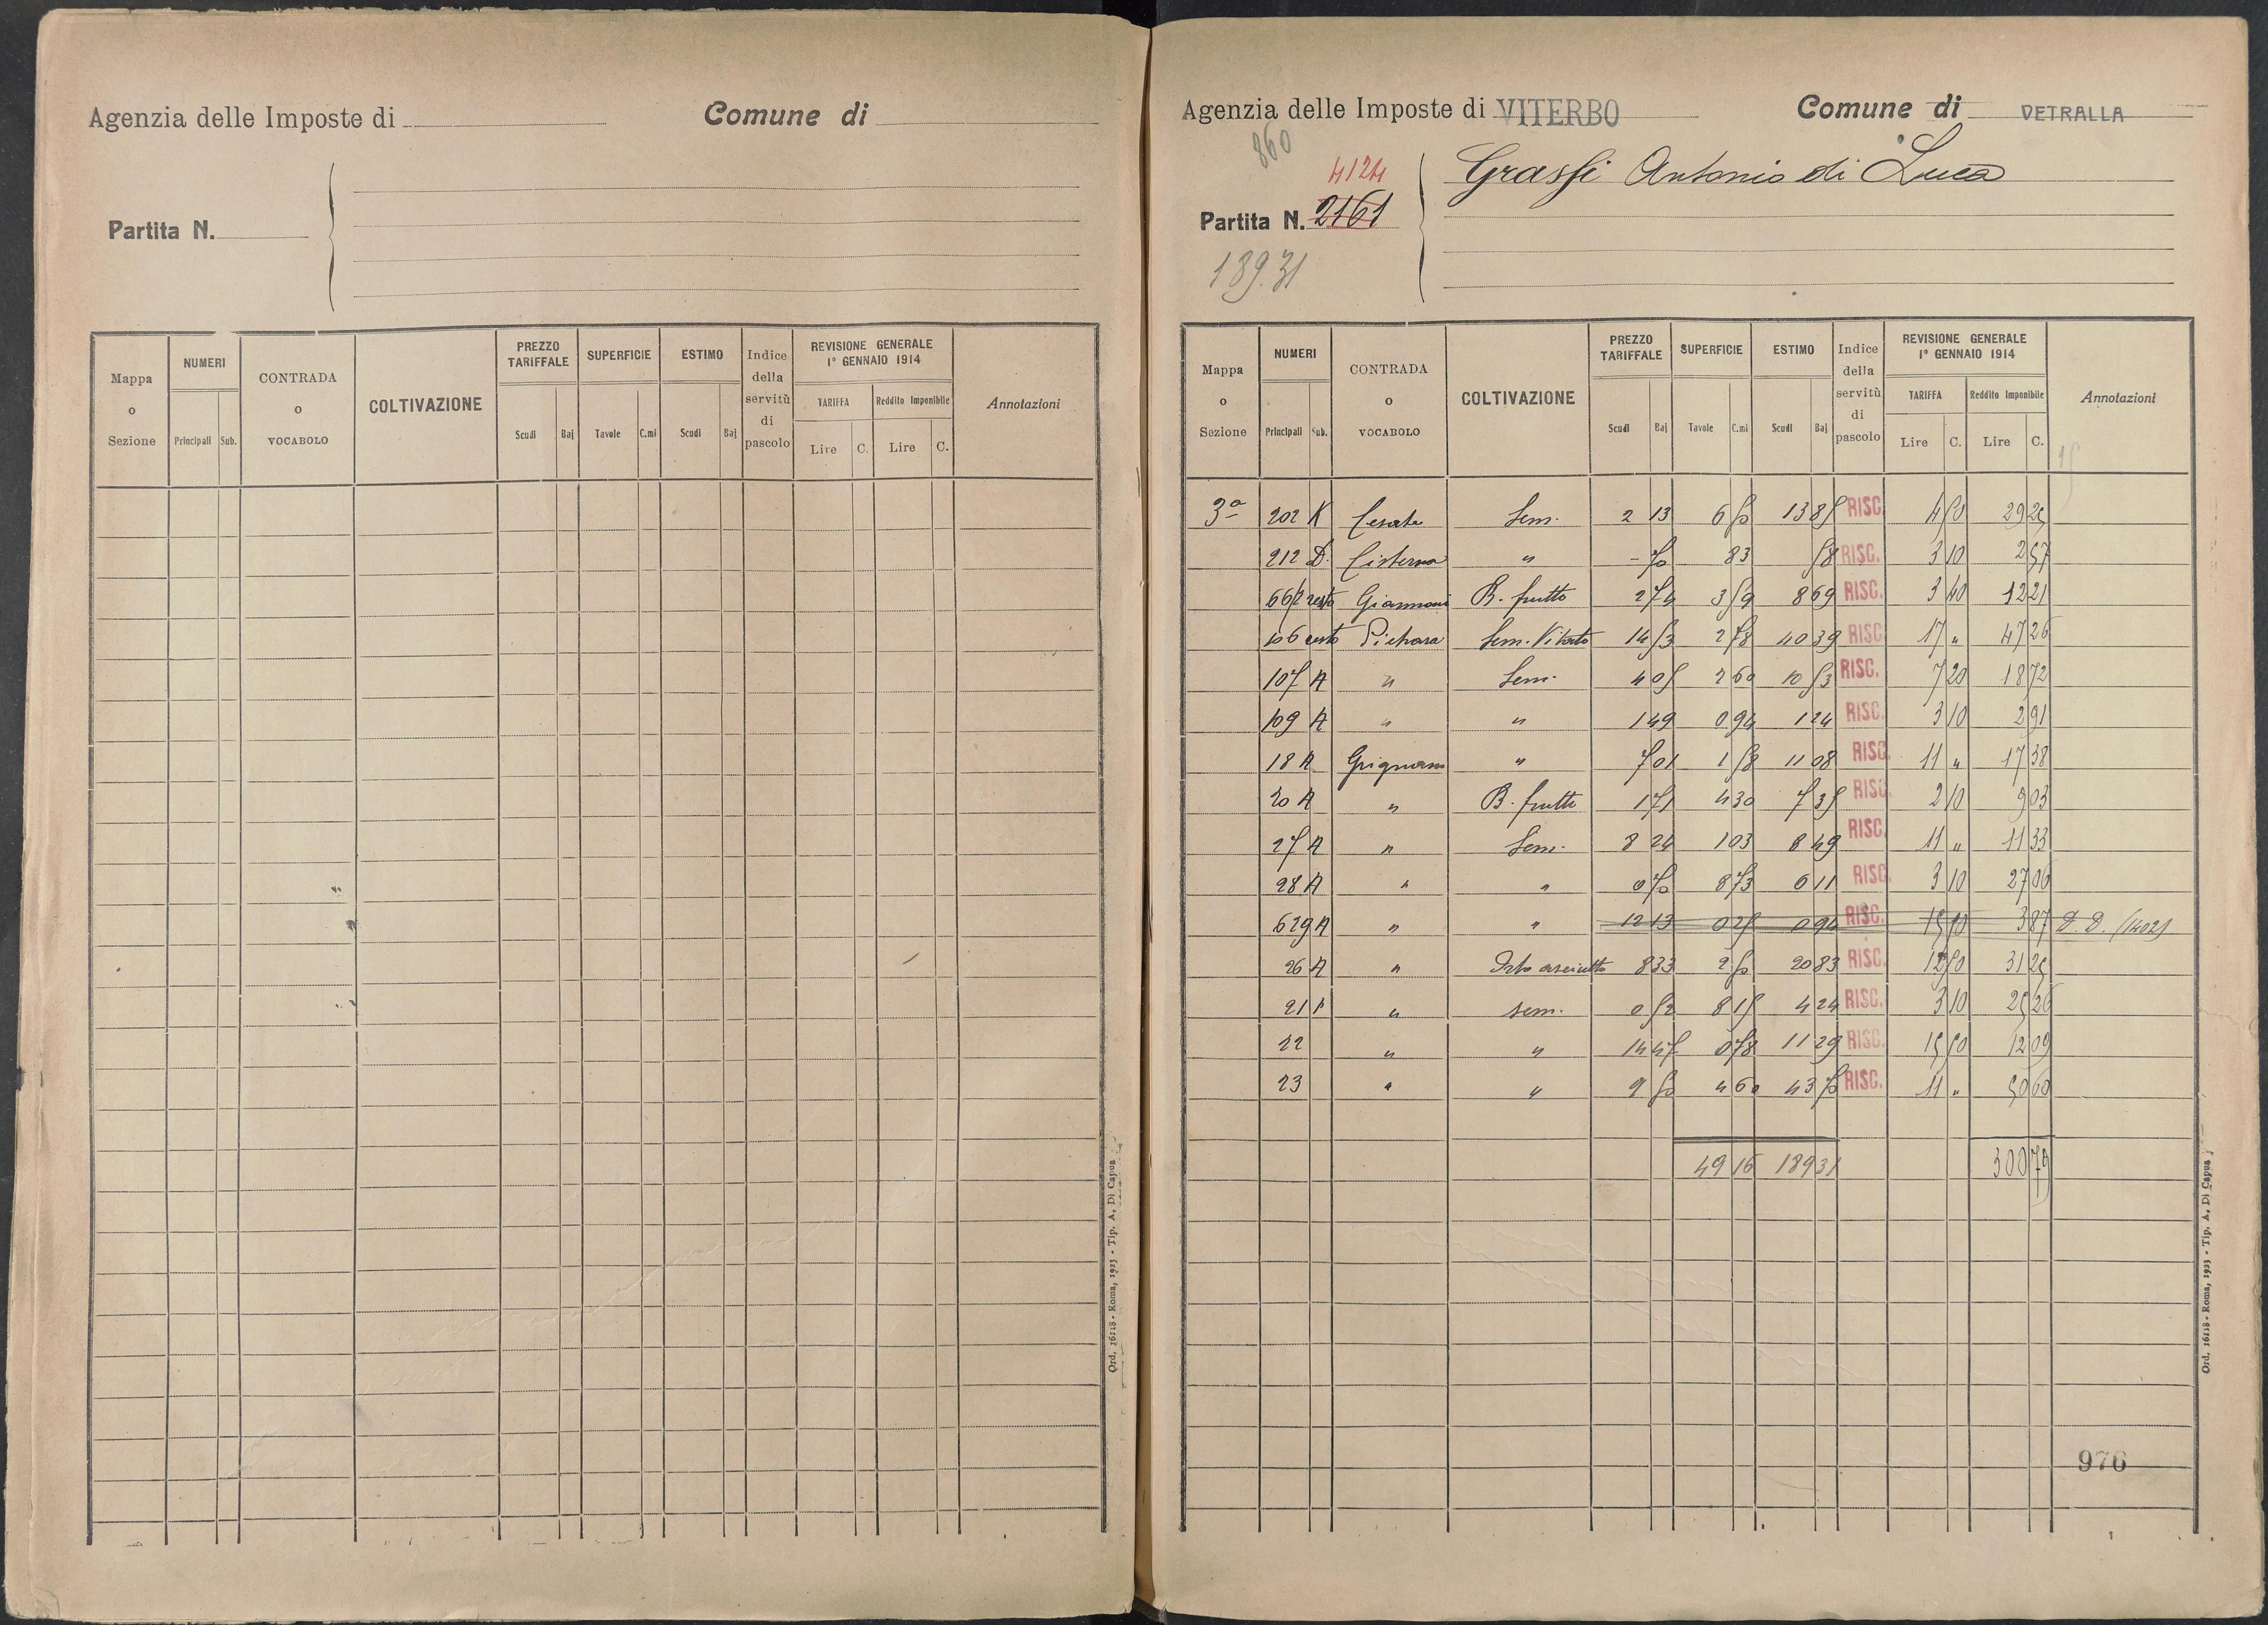 Agenzia delle Imposte di
Comune di
Partita N.
Mappa o Sezione
NUMERI
Principali Sub.
CONTRADA o VOCABOLO
COLTIVAZIONE
PREZZO TARIFFALE
Scudi Baj
SUPERFICIE
Tavole C.mi
ESTIMO
Scudi Baj
Indice della servitù di pascolo
REVISIONE GENERALE 1° GENNAIO 1914
TARIFFA Reddito Imponibile
Lire C. Lire C.
Annotazioni
Ord. 16118 - Roma, 1923 - Tip. A. Di Capua
Agenzia delle Imposte di VITERBO
Comune di VETRALLA
860
4124
Partita N. 2161
189.31
Grassi Antonio di Luca
Mappa o Sezione
NUMERI
Principali Sub.
CONTRADA o VOCABOLO
COLTIVAZIONE
PREZZO TARIFFALE
Scudi Baj
SUPERFICIE
Tavole C.mi
ESTIMO
Scudi Baj
Indice della servitù di pascolo
REVISIONE GENERALE 1° GENNAIO 1914
TARIFFA Reddito Imponibile
Lire C. Lire C.
Annotazioni
3a 202 K Sem. 2 13 6 50 13 85 RISC. 4 50 29 25
212 D. Cisterna " - 70 83 58 RISC. 3 10 2 57
resto B. frutto 2 74 3 59 8 69 RISC. 3 40 12 21
106 resto Sem. Vitato 14 53 2 78 40 39 RISC. 17 " 47 26
107 A " Sem. 4 05 2 60 10 53 RISC. 7 20 18 72
109 A " " 1 49 0 94 1 24 RISC. 3 10 2 91
18 A Grignano " 7 01 1 58 11 08 RISC. 11 " 17 38
20 A " B. frutti 1 71 4 30 7 35 RISC. 2 10 9 03
27 A " Sem. 8 24 1 03 8 49 RISC. 11 " 11 33
28 A " " 0 70 8 73 6 11 RISC. 3 10 27 06
629 A " " 12 13 0 25 0 94 RISC. 15 50 3 87 D. D. (1402)
26 A " Orto asciutto 8 33 2 50 20 83 RISC. 12 50 31 25
21 " sem. 0 52 8 15 4 24 RISC. 3 10 25 26
22 " " 14 47 0 78 11 29 RISC. 15 50 12 09
23 " " 9 50 4 60 43 70 RISC. 11 " 50 60
49 16 189 31 300 79
976
Ord. 16118 - Roma, 1923 - Tip. A. Di Capua